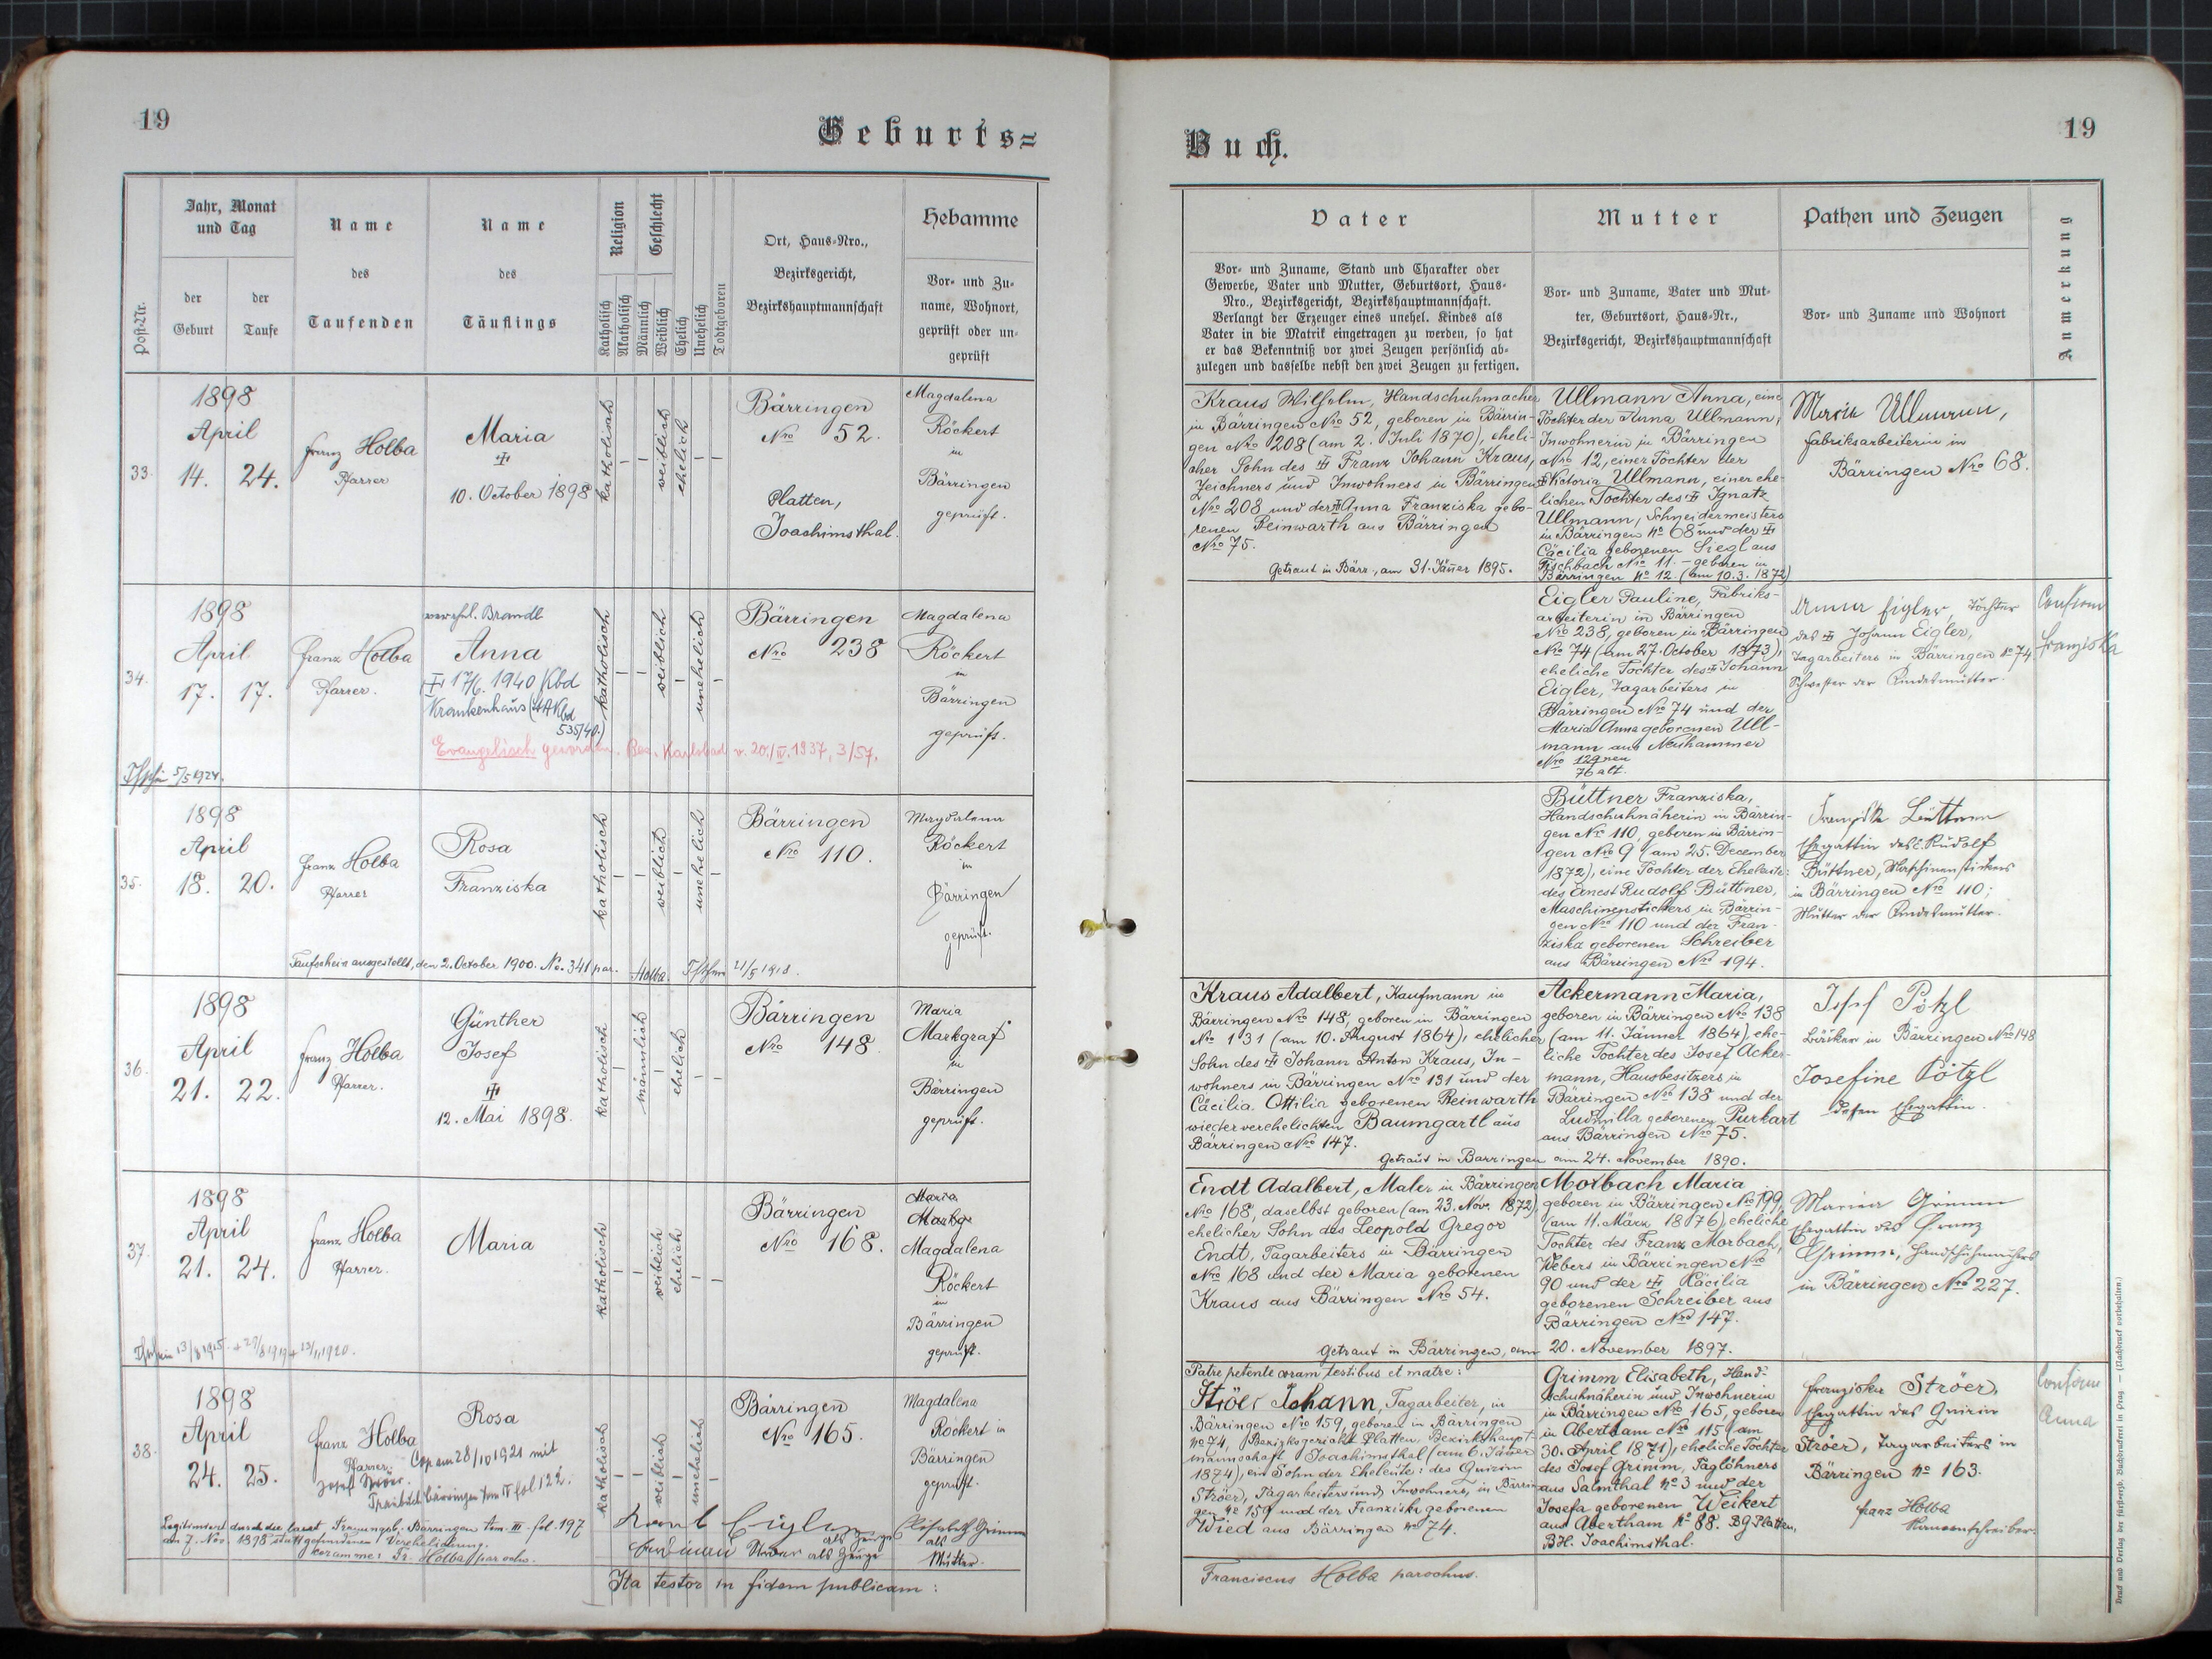 19
Geburts=
Jahr, Monat
und Tag
Name
Name
Religion
Geschlecht
Ort, Haus-Nro.,
Hebamme
des
des
Bezirksgericht,
Vor- und Zu-
Post-Nr.
der
der
Taufenden
Täuflings
Katholisch
Akatholisch
Männlich
Weiblich
Ehelich
Unehelich
Todtgeboren
Bezirkshauptmannschaft
name, Wohnort,
Geburt
Taufe
geprüft oder un-
geprüft
1898
April
33.
14.
24.
Franz Holba
Pfarrer
Maria
10. October 1898
katholisch
weiblich
ehelich
Bärringen
Nro 52.
Platten,
Joachimsthal.
Magdalena
Röckert
in
Bärringen
geprüft.
1898
April
34.
17.
17.
Franz Holba
Pfarrer.
verehel. Brandl
Anna
17/6. 1940 Kbd
Krankenhaus
535/40.)
Evangelisch geworden. Bez. Karlsbad v. 20./IV. 1937, 3/57.
katholisch
weiblich
unehelich
Bärringen
Nro 238
Magdalena
Röckert
in
Bärringen
geprüft.
5/5 1924.
1898
April
35.
18.
20.
Franz Holba
Pfarrer
Rosa
Franziska
katholisch
weiblich
unehelich
Bärringen
Nro 110.
Magdalena
Röckert
in
Bärringen
geprüft.
Taufschein ausgestellt, den 2. October 1900. No. 341 par. Holba.
21/5 1918.
1898
April
36.
21.
22.
Franz Holba
Pfarrer.
Günther
Josef
12. Mai 1898.
katholisch
männlich
ehelich
Bärringen
Nro 148.
Maria
Markgraf
in
Bärringen
geprüft.
1898
April
37.
21.
24.
Franz Holba
Pfarrer.
Maria
katholisch
weiblich
ehelich
Bärringen
Nro 168.
Maria
Markg.
Magdalena
Röckert
in
Bärringen
geprüft.
1898
April
38.
24.
25.
Franz Holba
Pfarrer.
Rosa
Cop am 28/10 1921 mit
Josef
Traubuch Bärringen tom IV fol 122.
katholisch
weiblich
unehelich
Bärringen
Nro 165.
Magdalena
Röckert in
Bärringen
geprüft.
Legitimiert durch die laut Trauungsb. Bärringen tom. III. fol. 197
am 7. Nov. 1898 stattgefundenen Verehelichung.
coram me: Fr. Holba parochus.
als Zeuge
als Zeuge
Elisabeth Grimm
als
Mutter.
Ita testor in fidem publicam:
19
Buch.
Vater
Mutter
Pathen und Zeugen
Anmerkung
Vor- und Zuname, Stand und Charakter oder
Gewerbe, Vater und Mutter, Geburtsort, Haus-
Nro., Bezirksgericht, Bezirkshauptmannschaft.
Verlangt der Erzeuger eines unehel. Kindes als
Vater in die Matrik eingetragen zu werden, so hat
er das Bekenntniß vor zwei Zeugen persönlich ab-
zulegen und dasselbe nebst den zwei Zeugen zu fertigen.
Vor- und Zuname, Vater und Mut-
ter, Geburtsort, Haus-Nr.,
Bezirksgericht, Bezirkshauptmannschaft
Vor- und Zuname und Wohnort
Kraus Wilhelm, Handschuhmacher
in Bärringen Nro 52, geboren in Bärrin-
gen Nro 208 (am 2. Juli 1870), eheli-
cher Sohn des Franz Johann Kraus,
Zeichners und Inwohners in Bärringen
Nro 208 und der Anna Franziska gebo-
renen Reinwarth aus Bärringen
Nro 75.
Getraut in Bärr., am 31. Jäner 1895.
Ullmann Anna, eine
Tochter der Anna Ullmann,
Inwohnerin in Bärringen
Nro 12, einer Tochter der
Viktoria Ullmann, einer ehe-
lichen Tochter des Ignatz
Ullmann, Schneidermeisters
in Bärringen No 68 und der
Cäcilia geborenen Siegl aus
Fischbach Nro 11. - geboren in
Bärringen No 12. (am 10.3.1872)
Maria Ullmann,
Fabriksarbeiterin in
Bärringen Nro 68.
Eigler Pauline, Fabriks-
arbeiterin in Bärringen
Nro 238, geboren in Bärringen
Nro 74 (am 27. October 1873),
eheliche Tochter des Johann
Eigler, Tagarbeiters in
Bärringen Nro 74 und der
Maria Anna geborenen Ull-
mann aus Neuhammer
Nro 129 neu
76 alt.
Anna Eigler, Tochter
des Johann Eigler,
Tagarbeiters in Bärringen No 74
Schwester der Kindesmutter.
Confirm
Franziska
Büttner Franziska,
Handschuhnäherin in Bärrin-
gen Nro 110, geboren in Bärrin-
gen Nro 9 (am 25. December
1872), eine Tochter der Eheleute:
des Ernest Rudolf Büttner,
Maschinenstickers in Bärrin-
gen Nro 110 und der Fran-
ziska geborenen Schreiber
aus Bärringen Nro 194.
Franziska Büttner
Ehegattin des E. Rudolf
Büttner, Maschinenstickers
in Bärringen Nro 110;
Mutter der Kindesmutter.
Kraus Adalbert, Kaufmann in
Bärringen Nro 148, geboren in Bärringen
Nro 131 (am 10. August 1864), ehelicher
Sohn des Johann Anton Kraus, In-
wohners in Bärringen Nro 131 und der
Cäcilia Ottilia geborenen Reinwarth
wiederverehelichten Baumgartl aus
Bärringen Nro 147.
Getraut in Bärringen am 24. November 1890.
Ackermann Maria,
geboren in Bärringen Nro 138
(am 11. Jänner 1864), ehe-
liche Tochter des Josef Acker-
mann, Hausbesitzers in
Bärringen Nro 138 und der
Ludmilla geborenen Purkart
aus Bärringen Nro 75.
Josef Pötzl
Bäcker in Bärringen Nro 148
Josefine Pötzl
dessen Ehegattin.
Endt Adalbert, Maler in Bärringen
Nro 168, daselbst geboren (am 23. Nov. 1872),
ehelicher Sohn des Leopold Gregor
Endt, Tagarbeiters in Bärringen
Nro 168 und der Maria geborenen
Kraus aus Bärringen Nro 54.
Getraut in Bärringen, am 20. November 1897.
Morbach Maria
geboren in Bärringen Nro 199,
(am 11. März 1876), eheliche
Tochter des Franz Morbach,
Webers in Bärringen Nro
90 und der Cäcilia
geborenen Schreiber aus
Bärringen Nro 147.
Grimm
Ehegattin des Franz
Grimm,
in Bärringen Nro 227.
Patre petente coram testibus et matre:
Ströer Johann, Tagarbeiter, in
Bärringen Nro 159, geboren in Bärringen
No 74, Bezirksgericht Platten, Bezirkshaupt-
mannschaft Joachimsthal (am 6. Jäner
1874), ein Sohn der Eheleute: des Quirin
Ströer, Tagarbeiters und Inwohners, in Bärrin-
gen No 159 und der Franziska geborenen
Wied aus Bärringen No 74.
Grimm Elisabeth, Hand-
schuhnäherin und Inwohnerin
in Bärringen Nro 165, geboren
in Abertham Nro 115 (am
30. April 1871), eheliche Tochter
des Josef Grimm, Taglöhners
aus Salmthal No 3 und der
Josefa geborenen Weikert
aus Abertham No 88. BG Platten,
BH. Joachimsthal.
Franziska Ströer,
Ehegattin des Quirin
Ströer, Tagarbeiters in
Bärringen No 163.
Franz Holba
Namensschreiber.
Confirm
Anna
Franciscus Holba parochus.
Druck und Verlag der fürsterzb. Buchdruckerei in Prag. — (Nachdruck vorbehalten.)